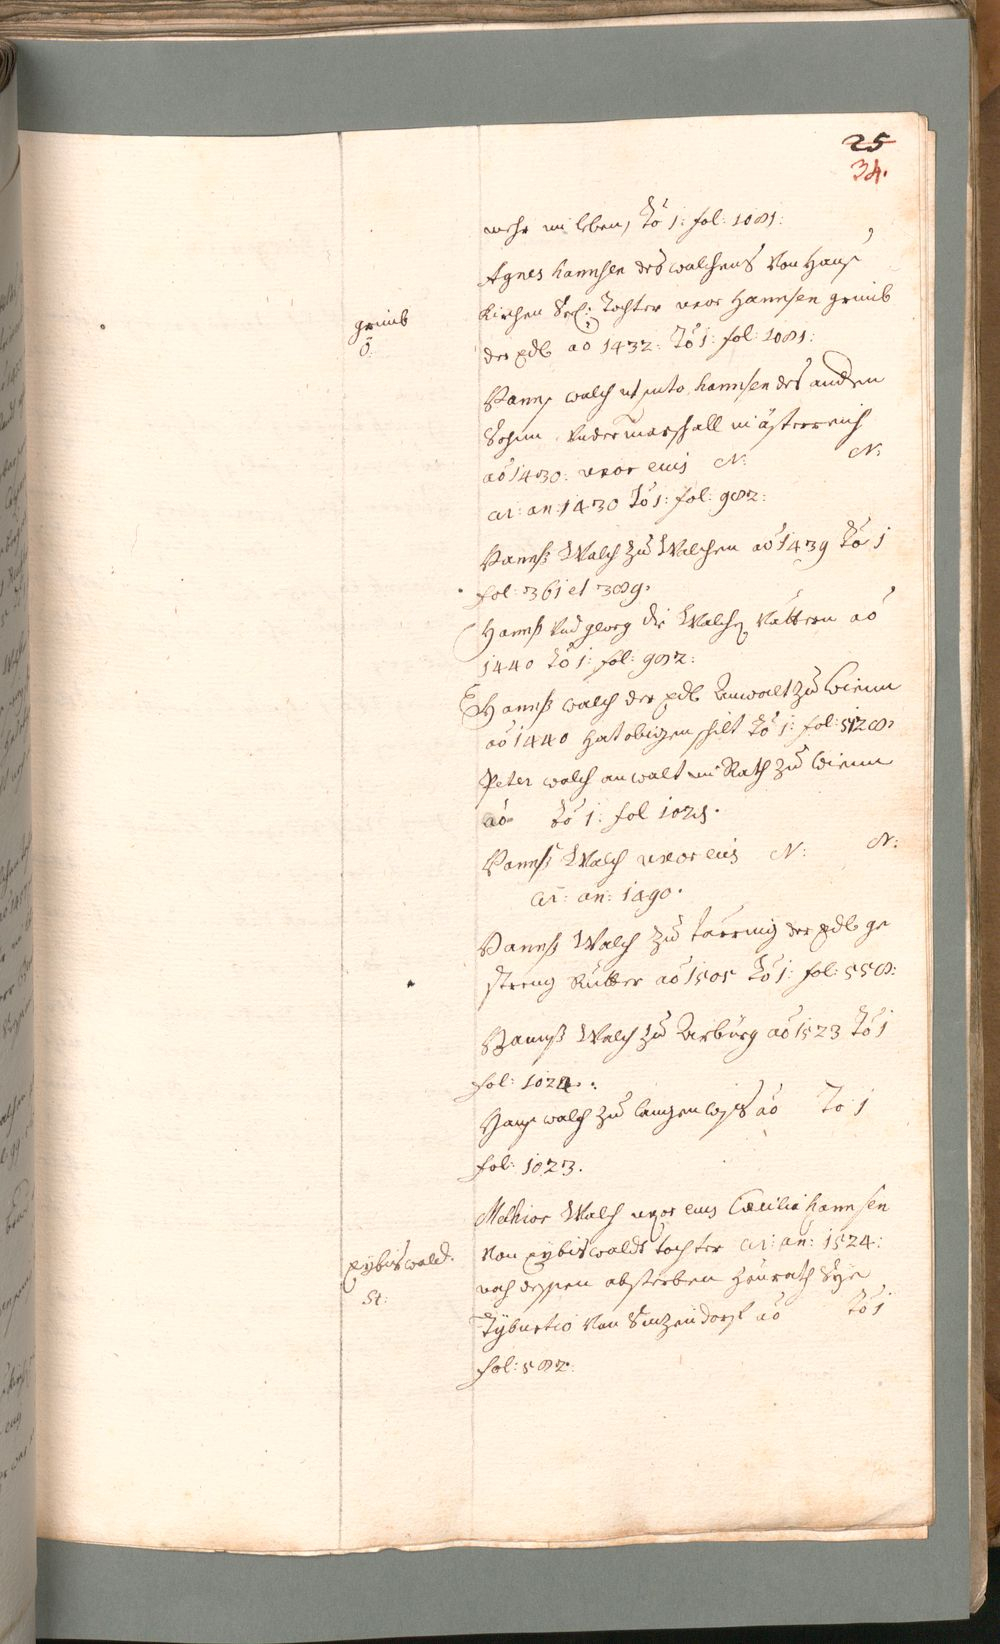 25
34.
mehr im leben, To 1: fol: 1081:
Agnes hannsen des walchens von Hauß
kirchen Sel: tochter uxor Hannsen grueb
grueb
Ö:
der edl aō 1432: To 1: fol: 1081:
Hannß walch ut puto hannsen des andern
Sohnn undermarschall in ästerreich
aō 1430: uxor eius N: N:
ar: an: 1430 To 1: fol: 982:
Hannß Walch zu Walchen aō 1439 To 1
fol: 361 et 389.
Hannß und georg die Walchen vättern aō
1440 To 1: fol: 982:
Hannß walch der edl Anwalt zu wienn
aō 1440 hat obigen schilt To 1: fol: 5128.
Peter walch anwalt im Rath zu wienn
aō To 1: fol 1025.
Hannß Walch uxor eius N: N:
ar: an: 1490.
Hannß Walch zu der edl ge
streng Ritter aō 1505 To 1: fol: 558:
Hannß Walch zu Arburg aō 1523 To 1
fol: 1024.
Hanß walch zu langenloiß aō To 1
fol: 1023.
Melchior Walch uxor eius Cæcilia hannsen
von eybiswaldt tochter ar: an: 1524:
eybiswald.
St:
nach dessen absterben heurath Sye
Tyburtio von Sinzendorf aō To 1
fol: 582.